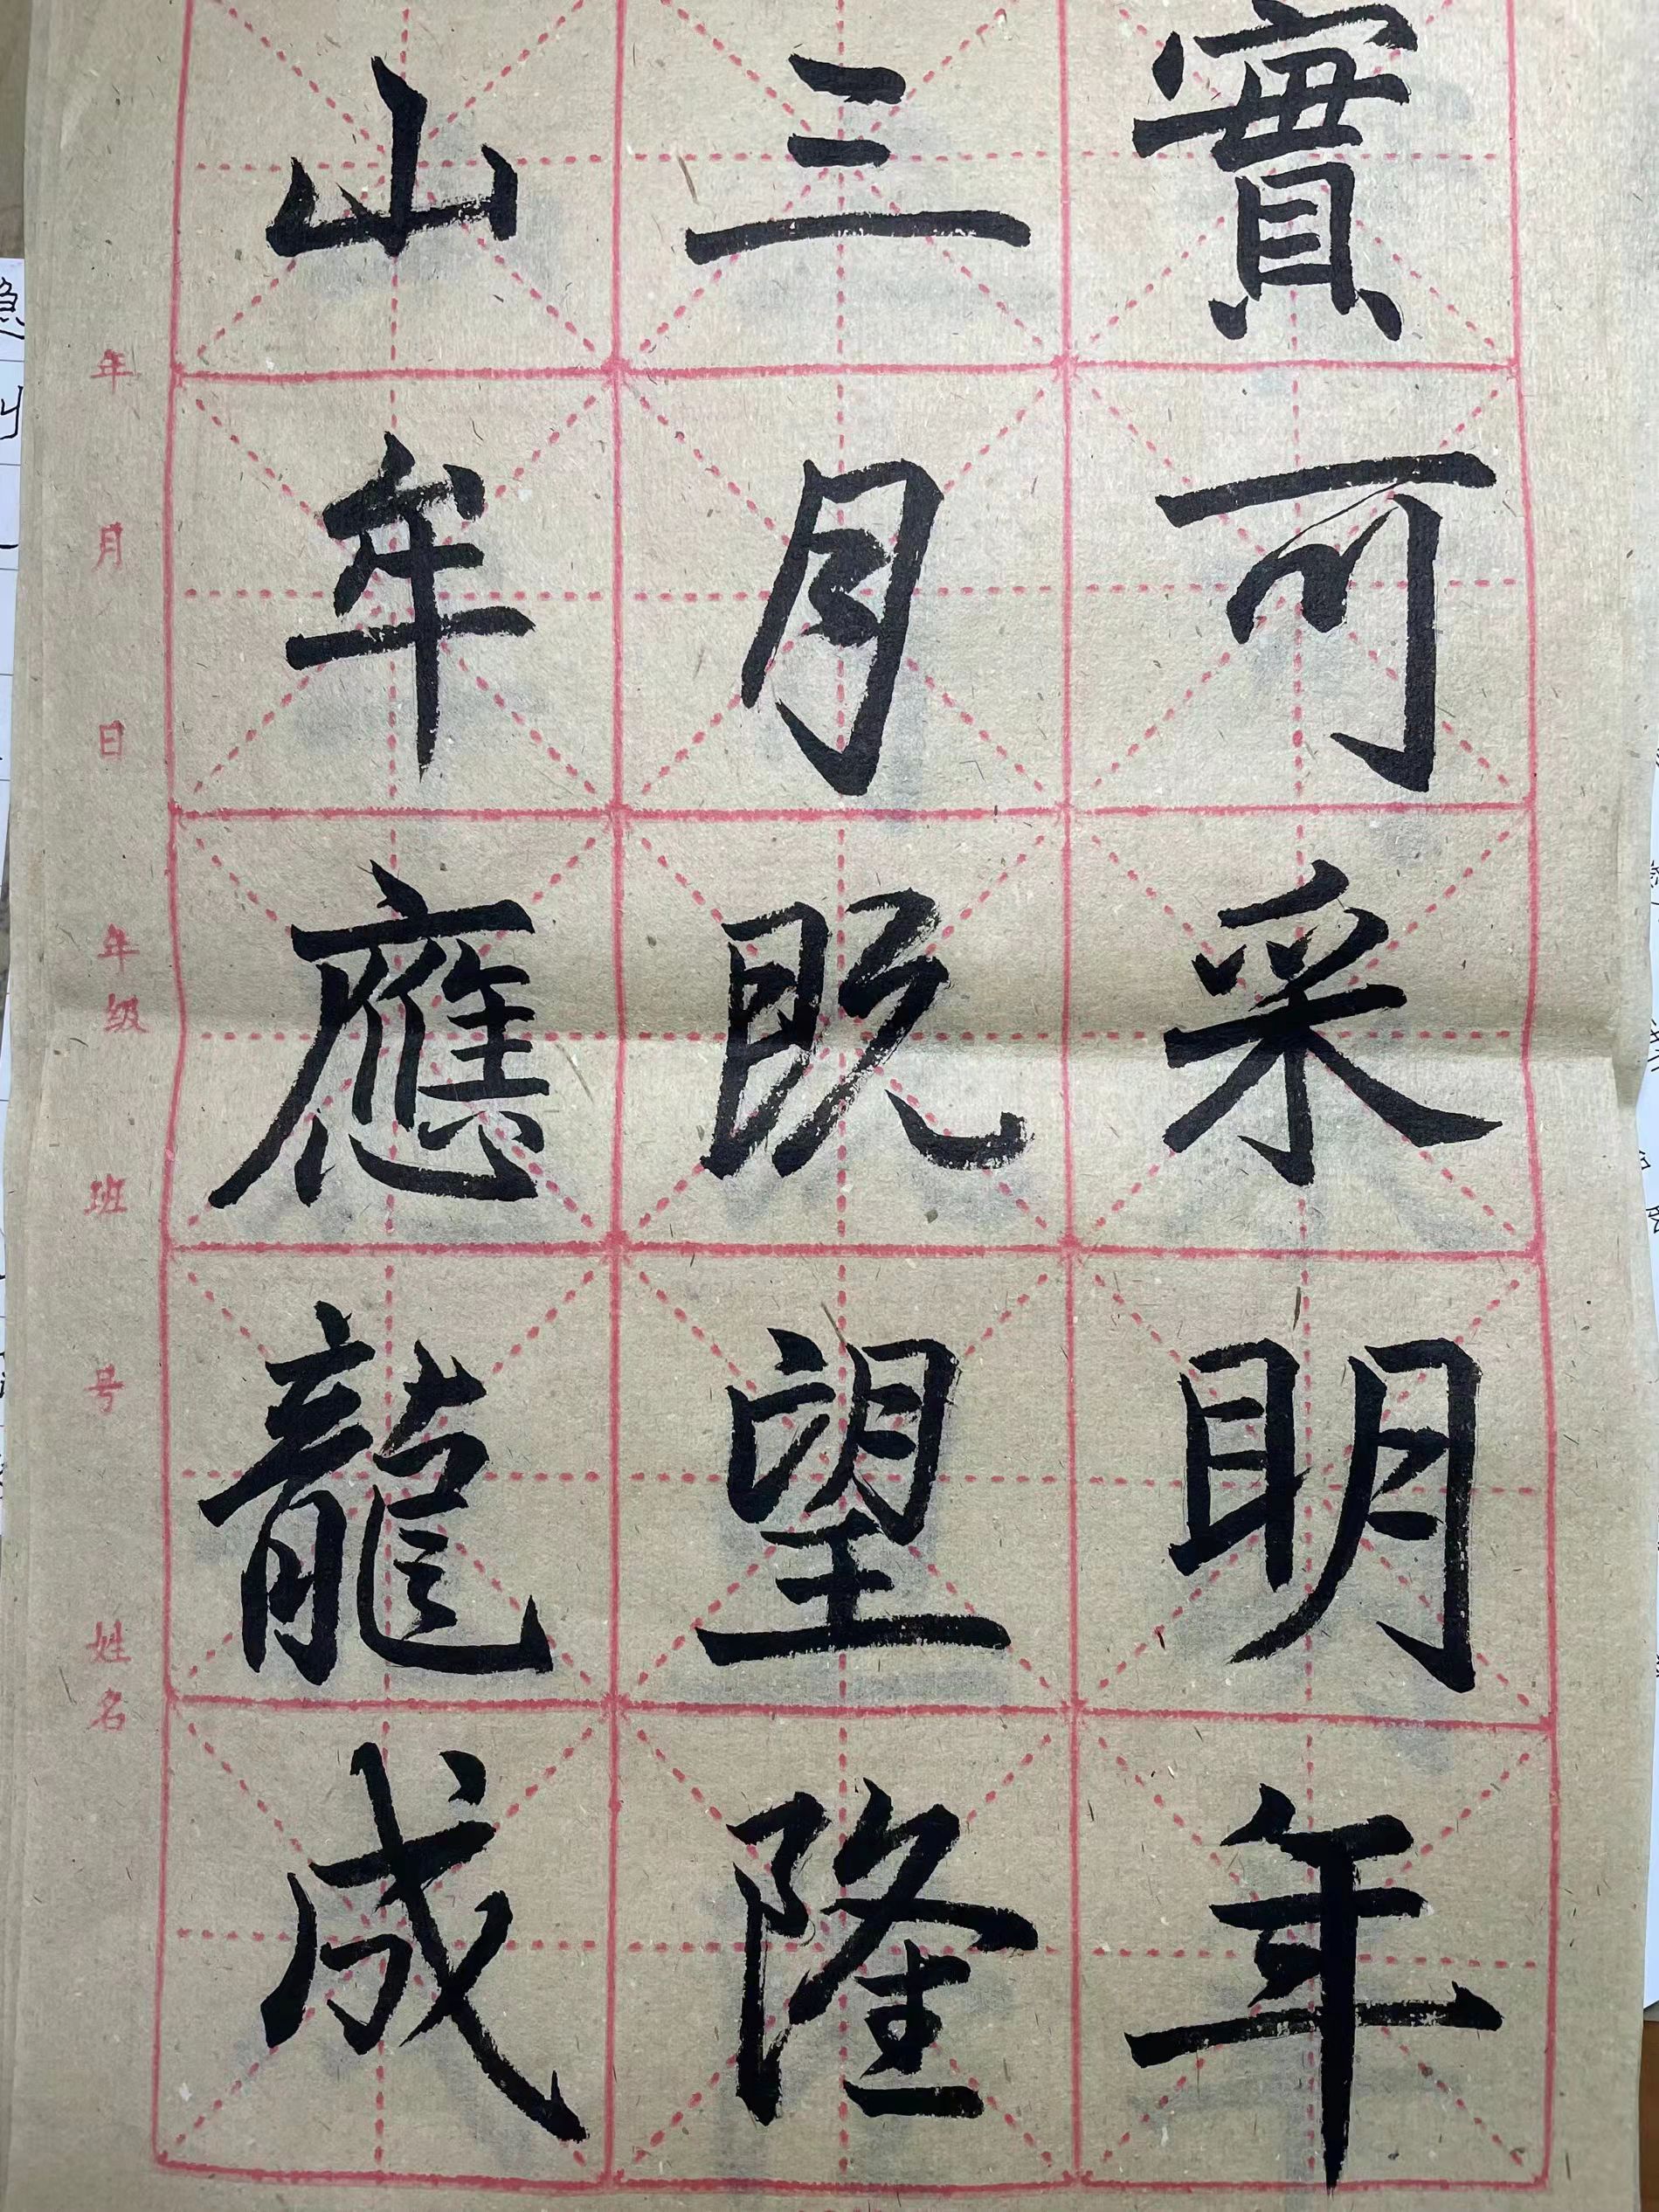 實可采明年
三月既望隆
山牟應龍成
年 月 日 年级 班 号 姓名